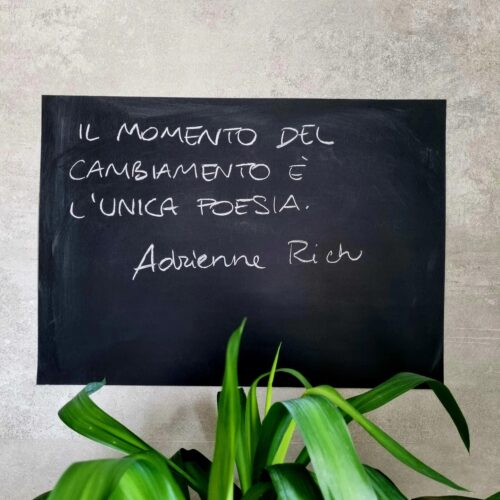 IL MOMENTO DEL
CAMBIAMENTO È
L'UNICA POESIA.
Adrienne Rich